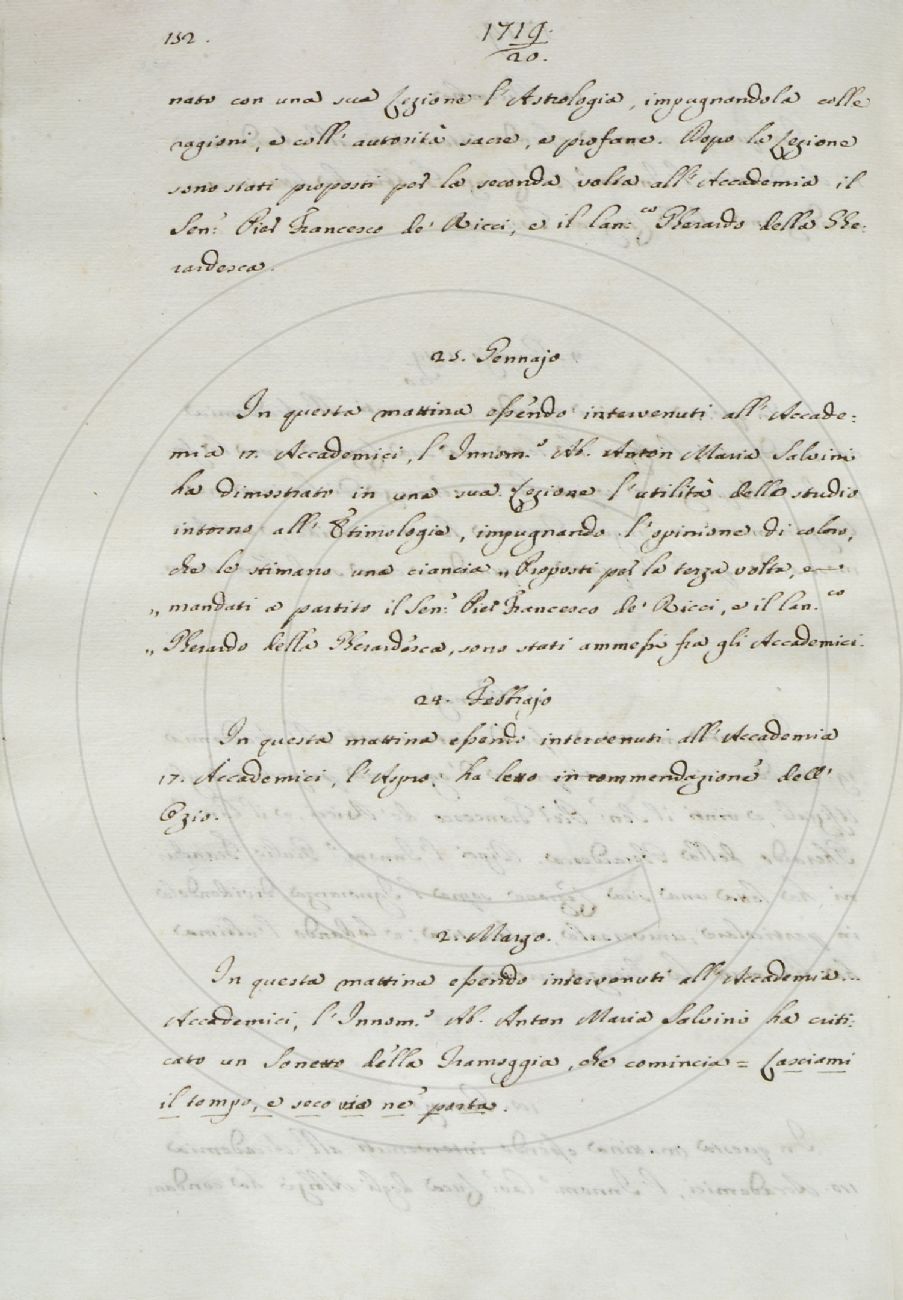 152.
1719.
20.
nato con una sua Lezione l'Astrologia, impugnandola colle
ragioni, e coll' autorità sacre, e profane. Dopo la Lezione
sono stati proposti per la seconda volta all' Accademia il
Sen.: Pier Francesco de' Ricci, e il Can.co Gherardo della Ghe:
rardesca.
25. Gennajo
In questa mattina essendo intervenuti all' Accade:
mia 17. Accademici, l'Innom.o Ab. Anton Maria Salvini
ha dimostrato in una sua Lezione l'utilità dello studio
intorno all' Etimologia, impugnando l'opinione di coloro,
che le stimano una ciancia „ Proposti per la terza volta, e
„ mandati a partito il Sen.: Pier Francesco de' Ricci, e il Can.co
„ Gherardo della Gherardesca, sono stati ammessi fra gli Accademici.
24. Febbrajo
In questa mattina essendo intervenuti all' Accademia
17. Accademici, l'Aspro: ha letto in commendazione dell'
Ozio.
2. Marzo.
In questa mattina essendo intervenuti all' Accademia...
Accademici, l'Innom.o Ab. Anton Maria Salvini ha criti:
cato un Sonetto della Tramoggia, che comincia = Lasciami
il tempo, e seco via ne porta.